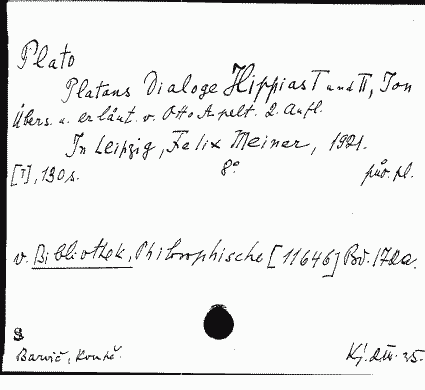 Plato
Platons Dialoge Hippias I und II, Ion
Übers. u. erläut. v. Otto Apelt. 2. Aufl.
In Leipzig, Felix Meiner, 1921.
[I], 130 s. 8° pův. pl.
v. Bibliothek, Philosophische [11646] Bd. 172a.
Barvič, koupě. Kj. 35.